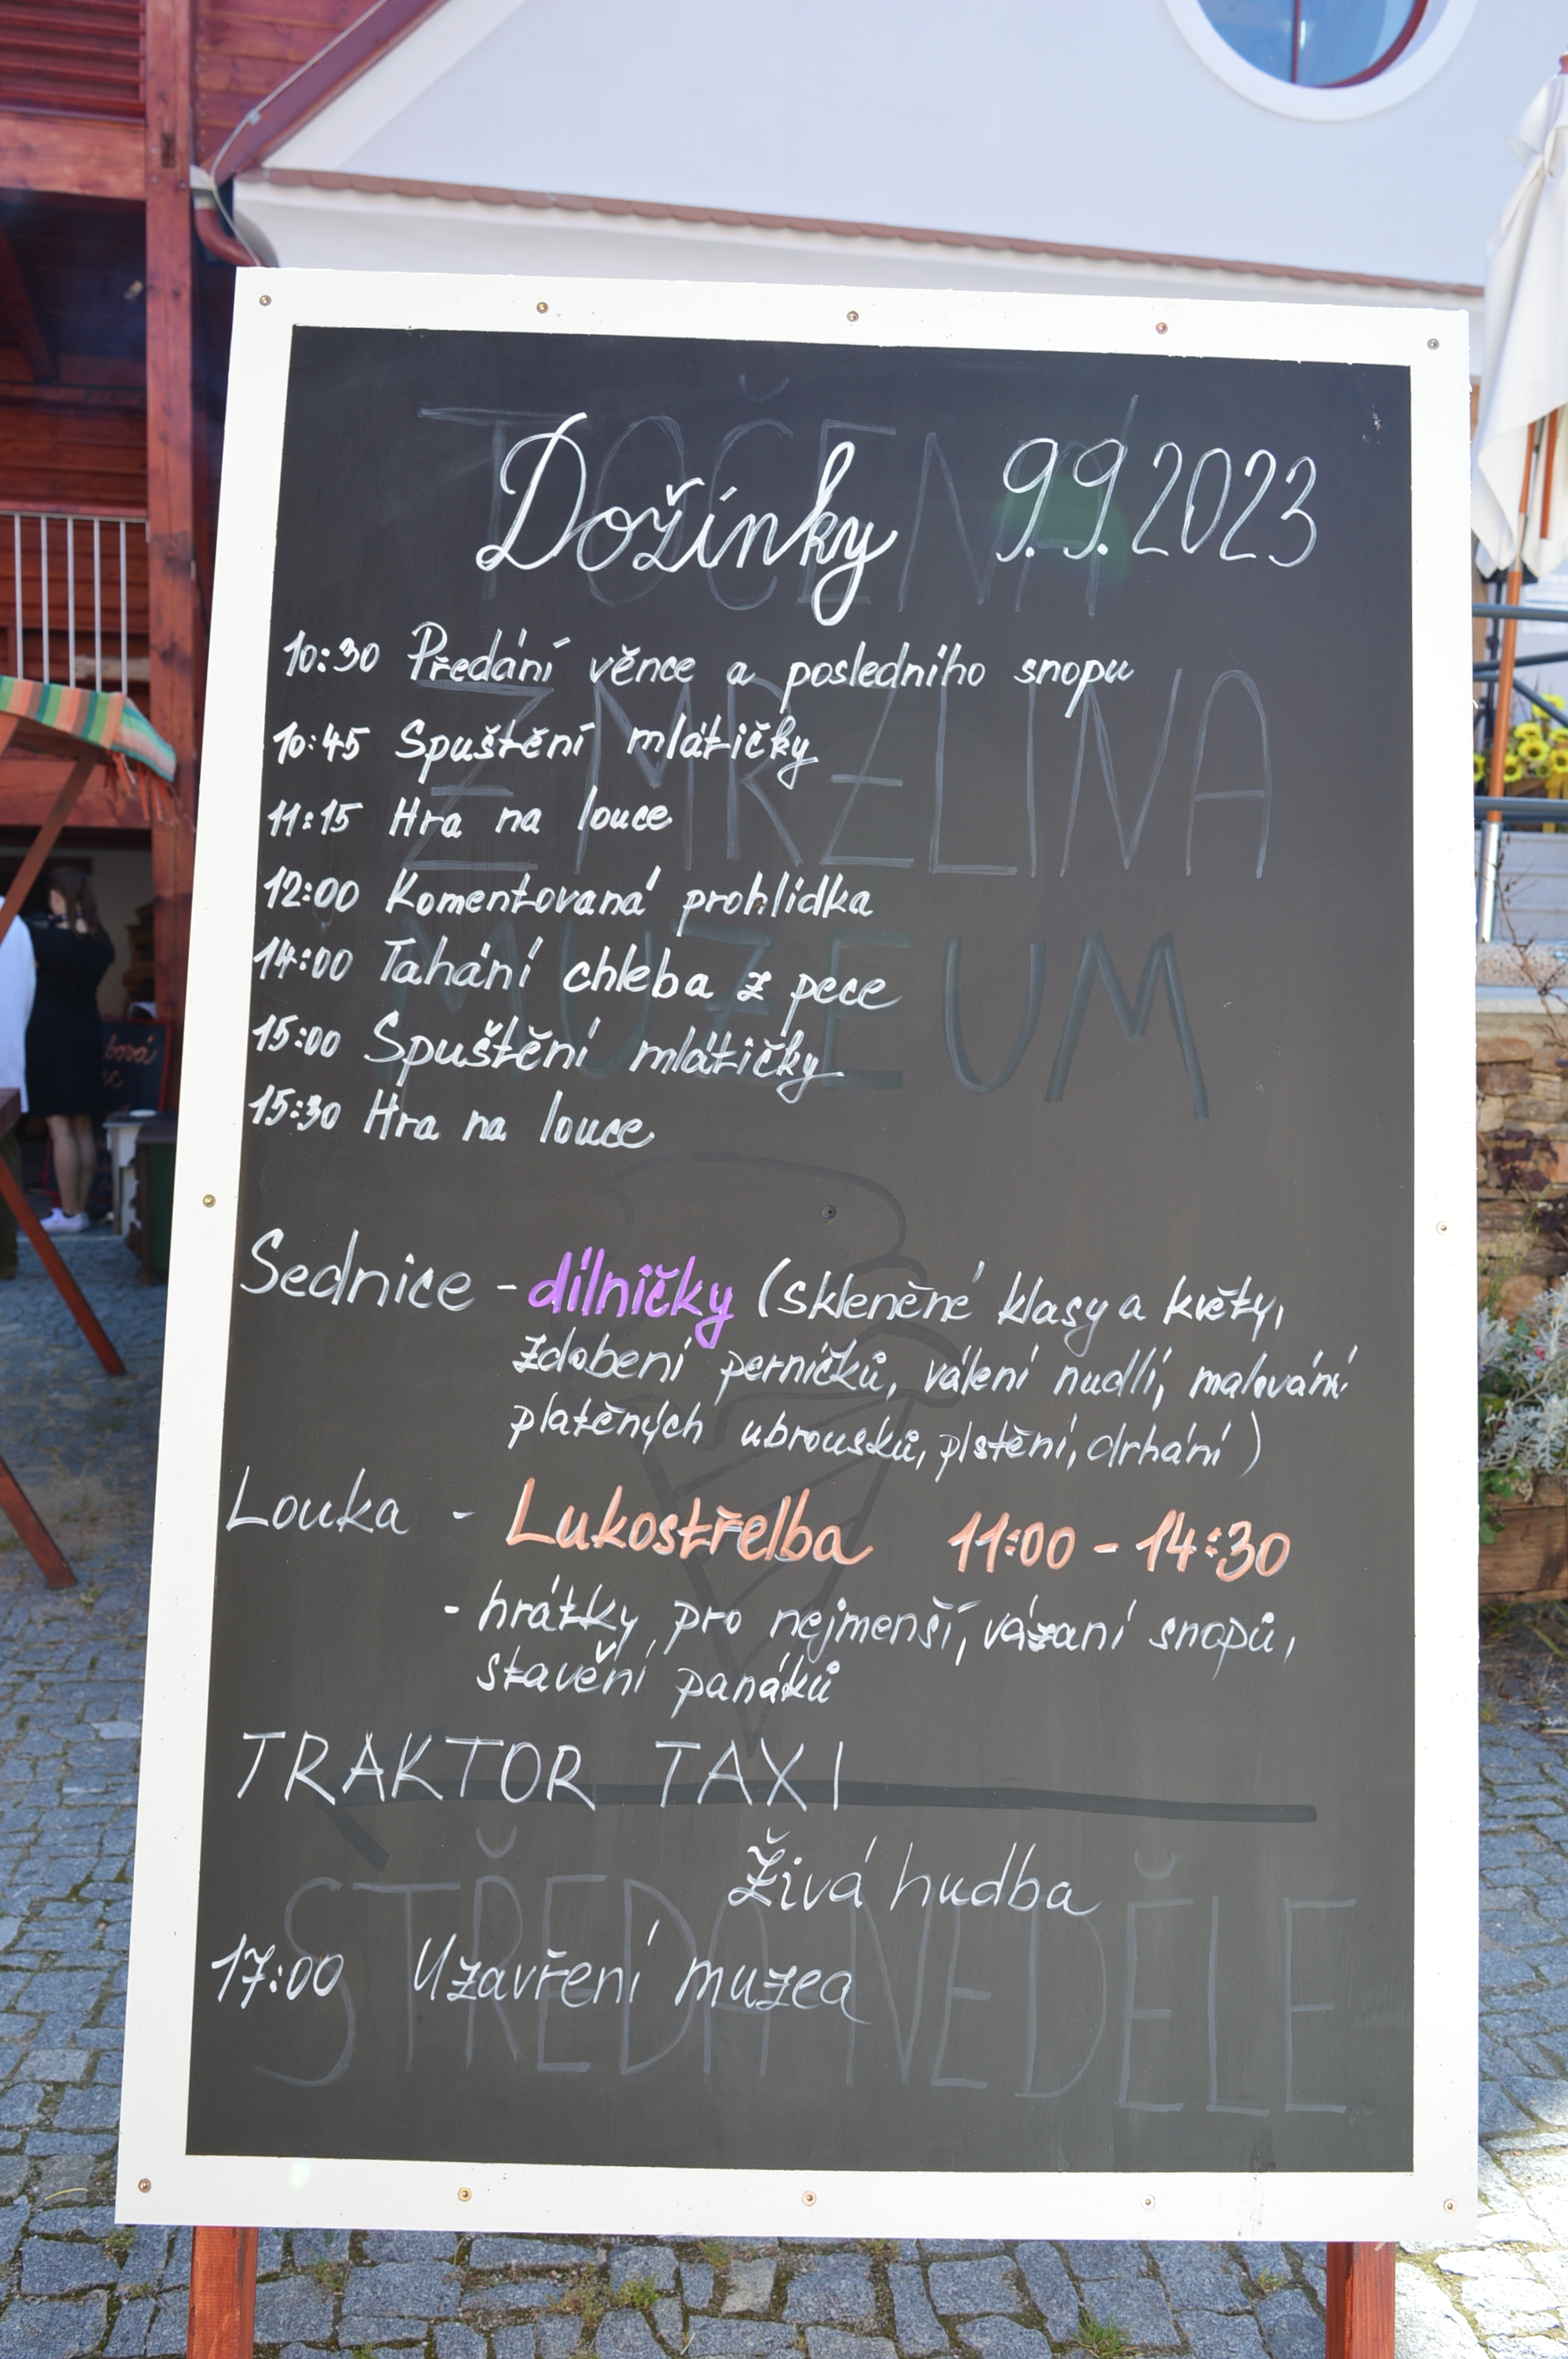 Dožínky 9.9.2023
10:30 Předání věnce a posledního snopu
10:45 Spuštění mlátičky
11:15 Hra na louce
12:00 Komentovaná prohlídka
14:00 Tahání chleba z pece
15:00 Spuštění mlátičky
15:30 Hra na louce
Sednice - dílničky (skleněné klasy a květy,
zdobení perníčků, válení nudlí, malování
platěných ubrousků, plstění, drhání)
Louka - Lukostřelba 11:00 - 14:30
- hrátky pro nejmenší, vázaní snopů,
stavění panáků
TRAKTOR TAXI
Živá hudba
17:00 Uzavření muzea
TOČENÁ
ZMRZLINA
MUZEUM
STŘEDA NEDĚLE